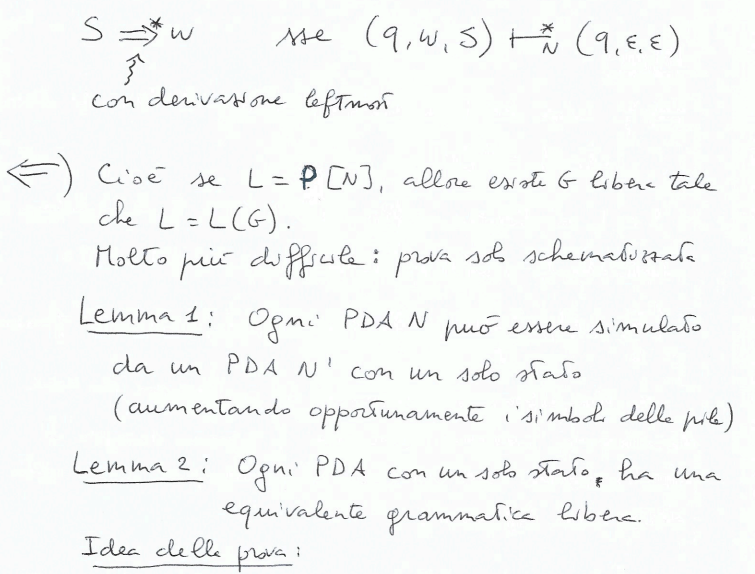 S ⇒* w sse (q, w, S) ⊢*_N (q, ε, ε)
con derivazione leftmost
⇐) Cioè se L = P[N], allora esiste G libera tale
che L = L(G).
Molto più difficile: prova solo schematizzata
Lemma 1: Ogni PDA N può essere simulato
da un PDA N' con un solo stato
(aumentando opportunamente i simboli della pila)
Lemma 2: Ogni PDA con un solo stato, ha una
equivalente grammatica libera.
Idea della prova: